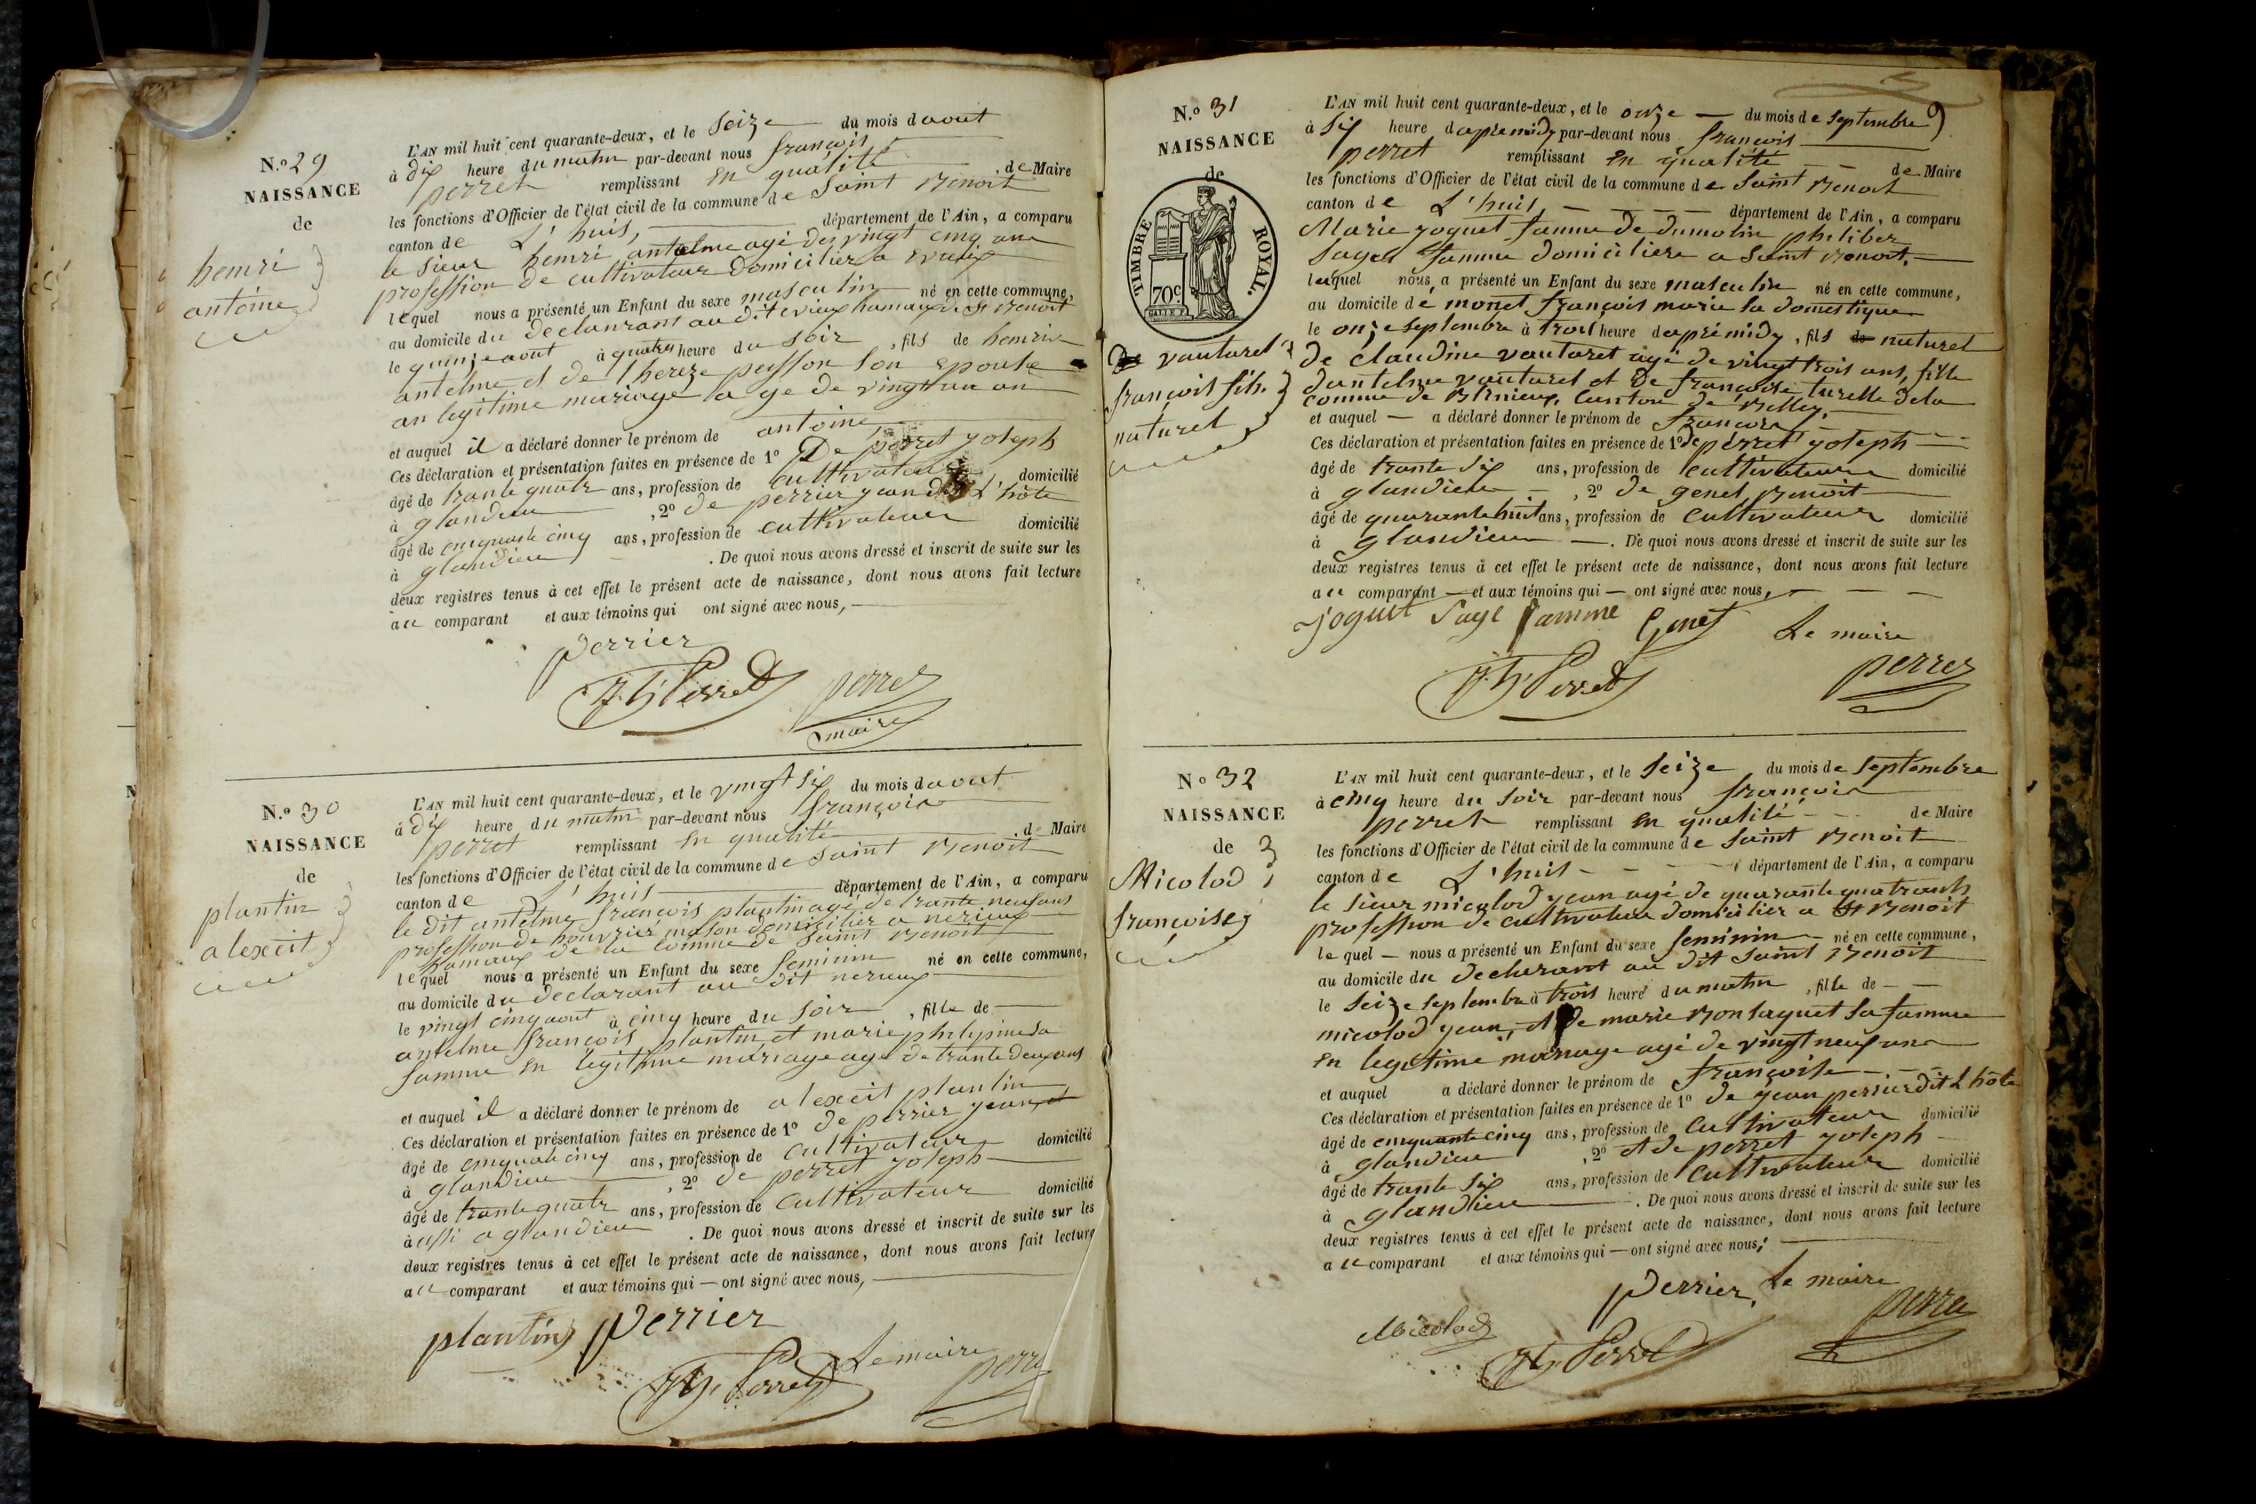 N.º 29
NAISSANCE
de
henri
antoine
L'AN mil huit cent quarante-deux, et le Seize du mois daout
à dix heure du matin par-devant nous françois
perret remplissant en qualité de Maire
les fonctions d'Officier de l'état civil de la commune de Saint Benoit
canton de L'huis, département de l'Ain, a comparu
le Sieur henri antelme agé de vingt cinq ans
profession de cultivateur domicilier a evieux
lequel nous a présenté un Enfant du sexe masculin né en cette commune,
au domicile du declarant au dit evieux hamaux de St Benoit
le quinze aout à quatre heure du soir, fils de henri
antelme et de therese peysson son epouse
an legitime mariage agé de vingt un an
et auquel il a déclaré donner le prénom de antoine
Ces déclaration et présentation faites en présence de 1º De perret joseph
âgé de trante quatr ans, profession de cultivateur domicilié
à glandieu, 2º de perrier jean dit L'hôte
âgé de cinquante cinq ans, profession de cultivateur domicilié
à glandieu. De quoi nous avons dressé et inscrit de suite sur les
deux registres tenus à cet effet le présent acte de naissance, dont nous avons fait lecture
au comparant et aux témoins qui ont signé avec nous,
perrier
Jh Perret perret
maire
N.º 30
NAISSANCE
de
plantin
alexcit
L'AN mil huit cent quarante-deux, et le vingt six du mois daout
à dix heure du matin par-devant nous françois
perret remplissant en qualité de Maire
les fonctions d'Officier de l'état civil de la commune de Saint Benoit
canton de L'huis département de l'Ain, a comparu
le dit antelme françois plantin agé de trante neuf ans
profession de houvrier mason domicilier a nerieux
hamaux de la comune de Saint Benoit
lequel nous a présenté un Enfant du sexe feminin né en cette commune,
au domicile du declarant au dit nerieux
le vingt cinq aout à cinq heure du soir, fille de
antelme françois plantin et marie philipine sa
famme en legitime mariage agé de trante deux ans
et auquel il a déclaré donner le prénom de alexcit plantin
Ces déclaration et présentation faites en présence de 1º De perrier jean
âgé de cinquante cinq ans, profession de cultivateur domicilié
à glandieu, 2º de perret joseph
âgé de trante quatr ans, profession de cultivateur domicilié
à ussi a glandieu. De quoi nous avons dressé et inscrit de suite sur les
deux registres tenus à cet effet le présent acte de naissance, dont nous avons fait lecture
au comparant et aux témoins qui — ont signé avec nous,
plantin perrier
Jh Perret Le maire
perret
N.º 31
NAISSANCE
de
TIMBRE ROYAL.
70c.
vauturet
françois fils
naturel
L'AN mil huit cent quarante-deux, et le onze — du mois de Septembre
à Six heure daprémidy par-devant nous françois
perret remplissant en qualité de Maire
les fonctions d'Officier de l'état civil de la commune de Saint Benoit
canton de L'huis, département de l'Ain, a comparu
Marie joguet famme de dumolin philiber
Sages famme domiciliere a Saint Benoit.
laquel nous a présenté un Enfant du sexe masculin né en cette commune,
au domicile de monet françois marie la domestique
le onze septembre à trois heure daprémidy, fils de naturel
de claudine vauturet agé de vingt trois ans, fille
dantelme vauturet et de françoise turelle dela
comune de Virnieux, Canton de Belley.
et auquel — a déclaré donner le prénom de françois
Ces déclaration et présentation faites en présence de 1º de perret joseph
âgé de trante six ans, profession de cultivateur domicilié
à glandieu, 2º de genet Benoit
âgé de quarante huit ans, profession de cultivateur domicilié
à glandieu —. De quoi nous avons dressé et inscrit de suite sur les
deux registres tenus à cet effet le présent acte de naissance, dont nous avons fait lecture
au comparant — et aux témoins qui — ont signé avec nous,
joguet Sage famme Genet Le maire
Jh Perret perret
N.º 32
NAISSANCE
de
Micolod
françoise
L'AN mil huit cent quarante-deux, et le Seize du mois de Septembre
à cinq heure du soir par-devant nous françois
perret remplissant en qualité de Maire
les fonctions d'Officier de l'état civil de la commune de Saint Benoit
canton de L'huis département de l'Ain, a comparu
le Sieur micolod jean agé de quarante quatr ans
profession de cultivateur domicilier a St Benoit
lequel — nous a présenté un Enfant du sexe feminin — né en cette commune,
au domicile du declarant au dit Saint Benoit
le Seize septembre à trois heure du matin, fille de
micolod jean, et de marie Bonsaquet sa famme
en legitime mariage agé de vingt neuf ans
et auquel a déclaré donner le prénom de françoise
Ces déclaration et présentation faites en présence de 1º de jean perrier dit L'hôte
âgé de cinquante cinq ans, profession de cultivateur domicilié
à glandieu, 2º et de perret joseph
âgé de trante six ans, profession de cultivateur domicilié
à glandieu. De quoi nous avons dressé et inscrit de suite sur les
deux registres tenus à cet effet le présent acte de naissance, dont nous avons fait lecture
au comparant et aux témoins qui — ont signé avec nous,
perrier, Le maire
Micolod Jh Perret perret